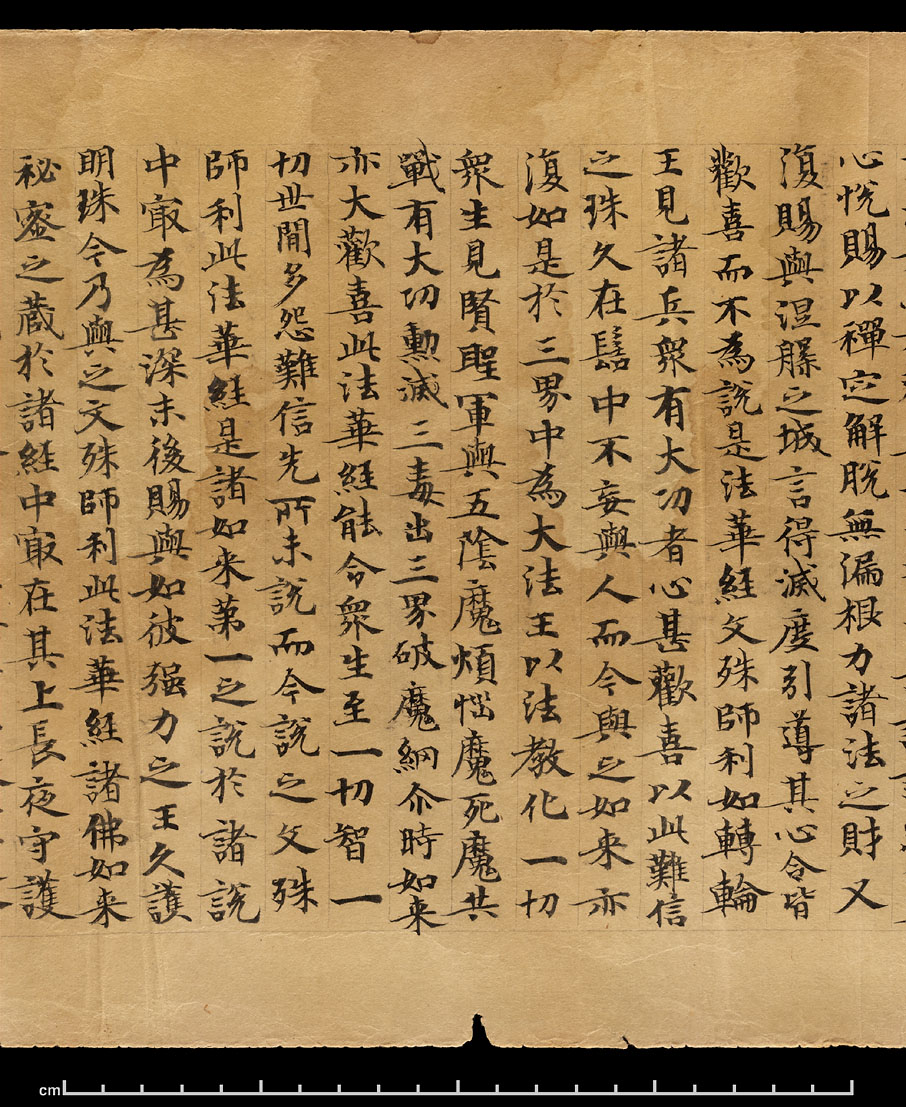 心悅賜以禪定解脫無漏根力諸法之財又
復賜與涅槃之城言得滅度引導其心令皆
歡喜而不為說是法華經文殊師利如轉輪
王見諸兵衆有大功者心甚歡喜以此難信
之珠久在髻中不妄與人而今與之如来亦
復如是於三界中為大法王以法教化一切
衆生見賢聖軍與五陰魔煩惱魔死魔共
戰有大功勳滅三毒出三界破魔網尒時如来
亦大歡喜此法華経能令衆生至一切智一
切世間多怨難信先所未說而今說之文殊
師利此法華経是諸如来第一之說於諸說
中㝡為甚深末後賜與如彼强力之王久護
明珠今乃與之文殊師利此法華経諸佛如来
秘密之蔵於諸経中㝡在其上長夜守護